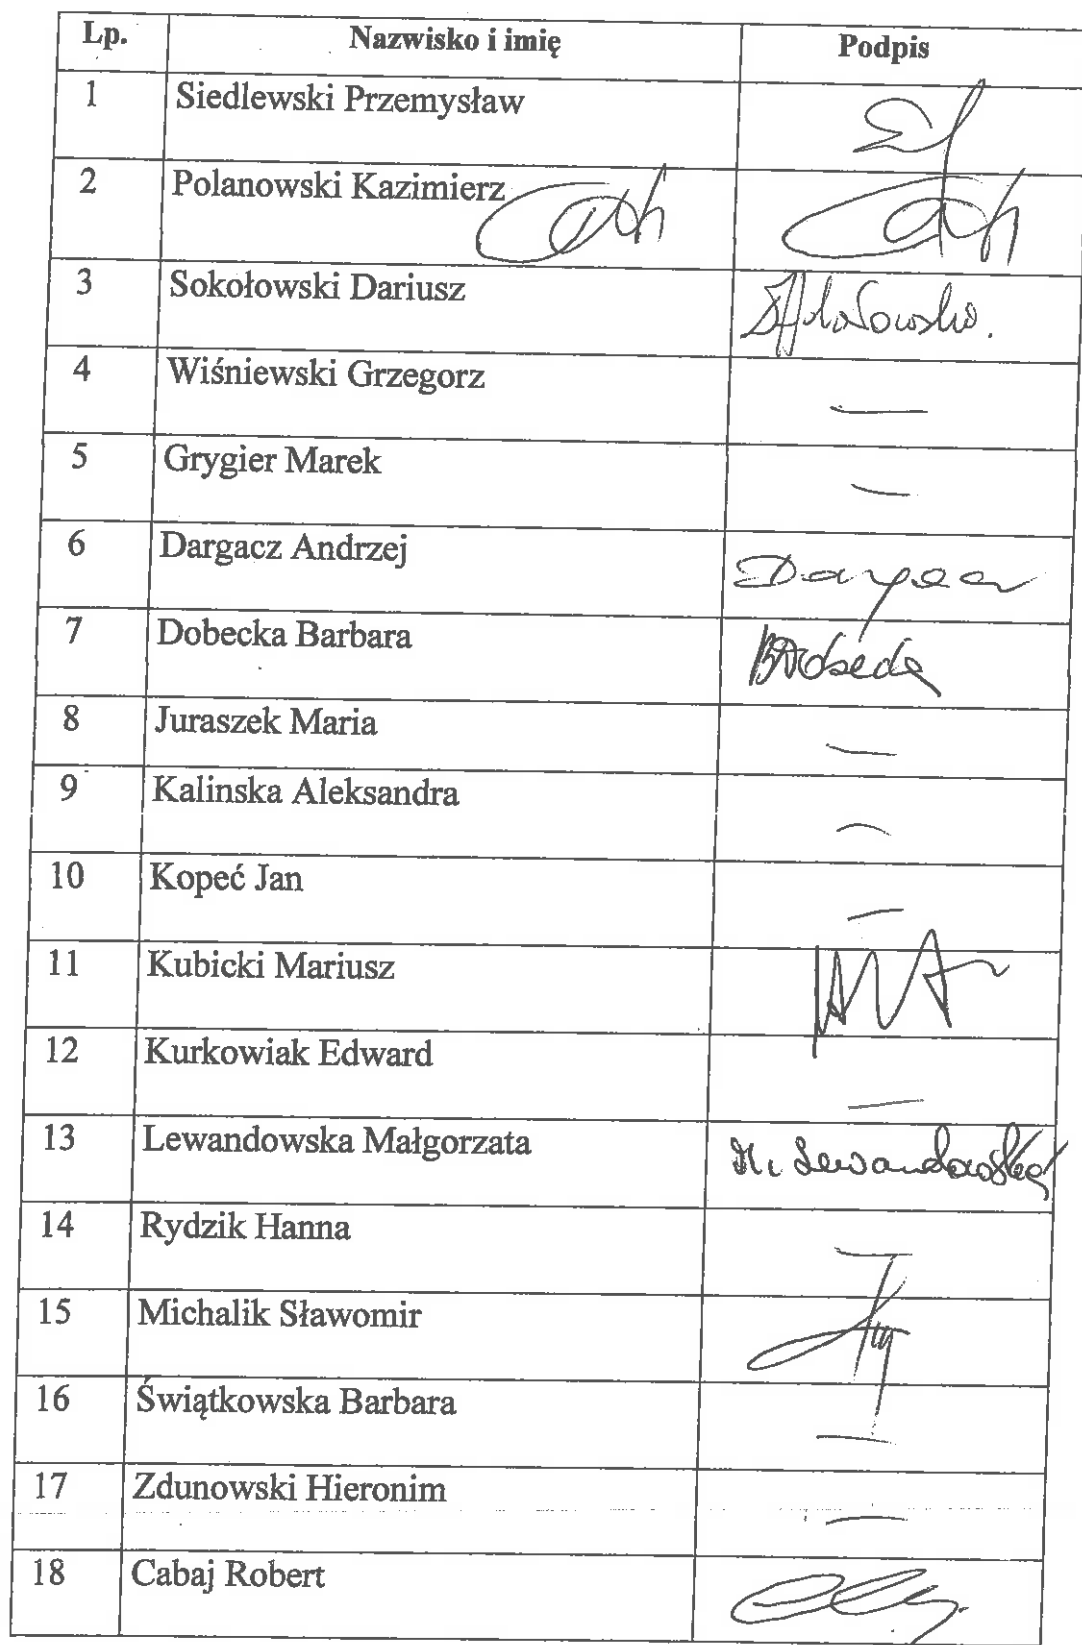 Lp. Nazwisko i imię Podpis
1 Siedlewski Przemysław
2 Polanowski Kazimierz
3 Sokołowski Dariusz
4 Wiśniewski Grzegorz —
5 Grygier Marek —
6 Dargacz Andrzej
7 Dobecka Barbara
8 Juraszek Maria —
9 Kalinska Aleksandra —
10 Kopeć Jan —
11 Kubicki Mariusz
12 Kurkowiak Edward —
13 Lewandowska Małgorzata M. Lewandowska
14 Rydzik Hanna —
15 Michalik Sławomir
16 Świątkowska Barbara —
17 Zdunowski Hieronim —
18 Cabaj Robert